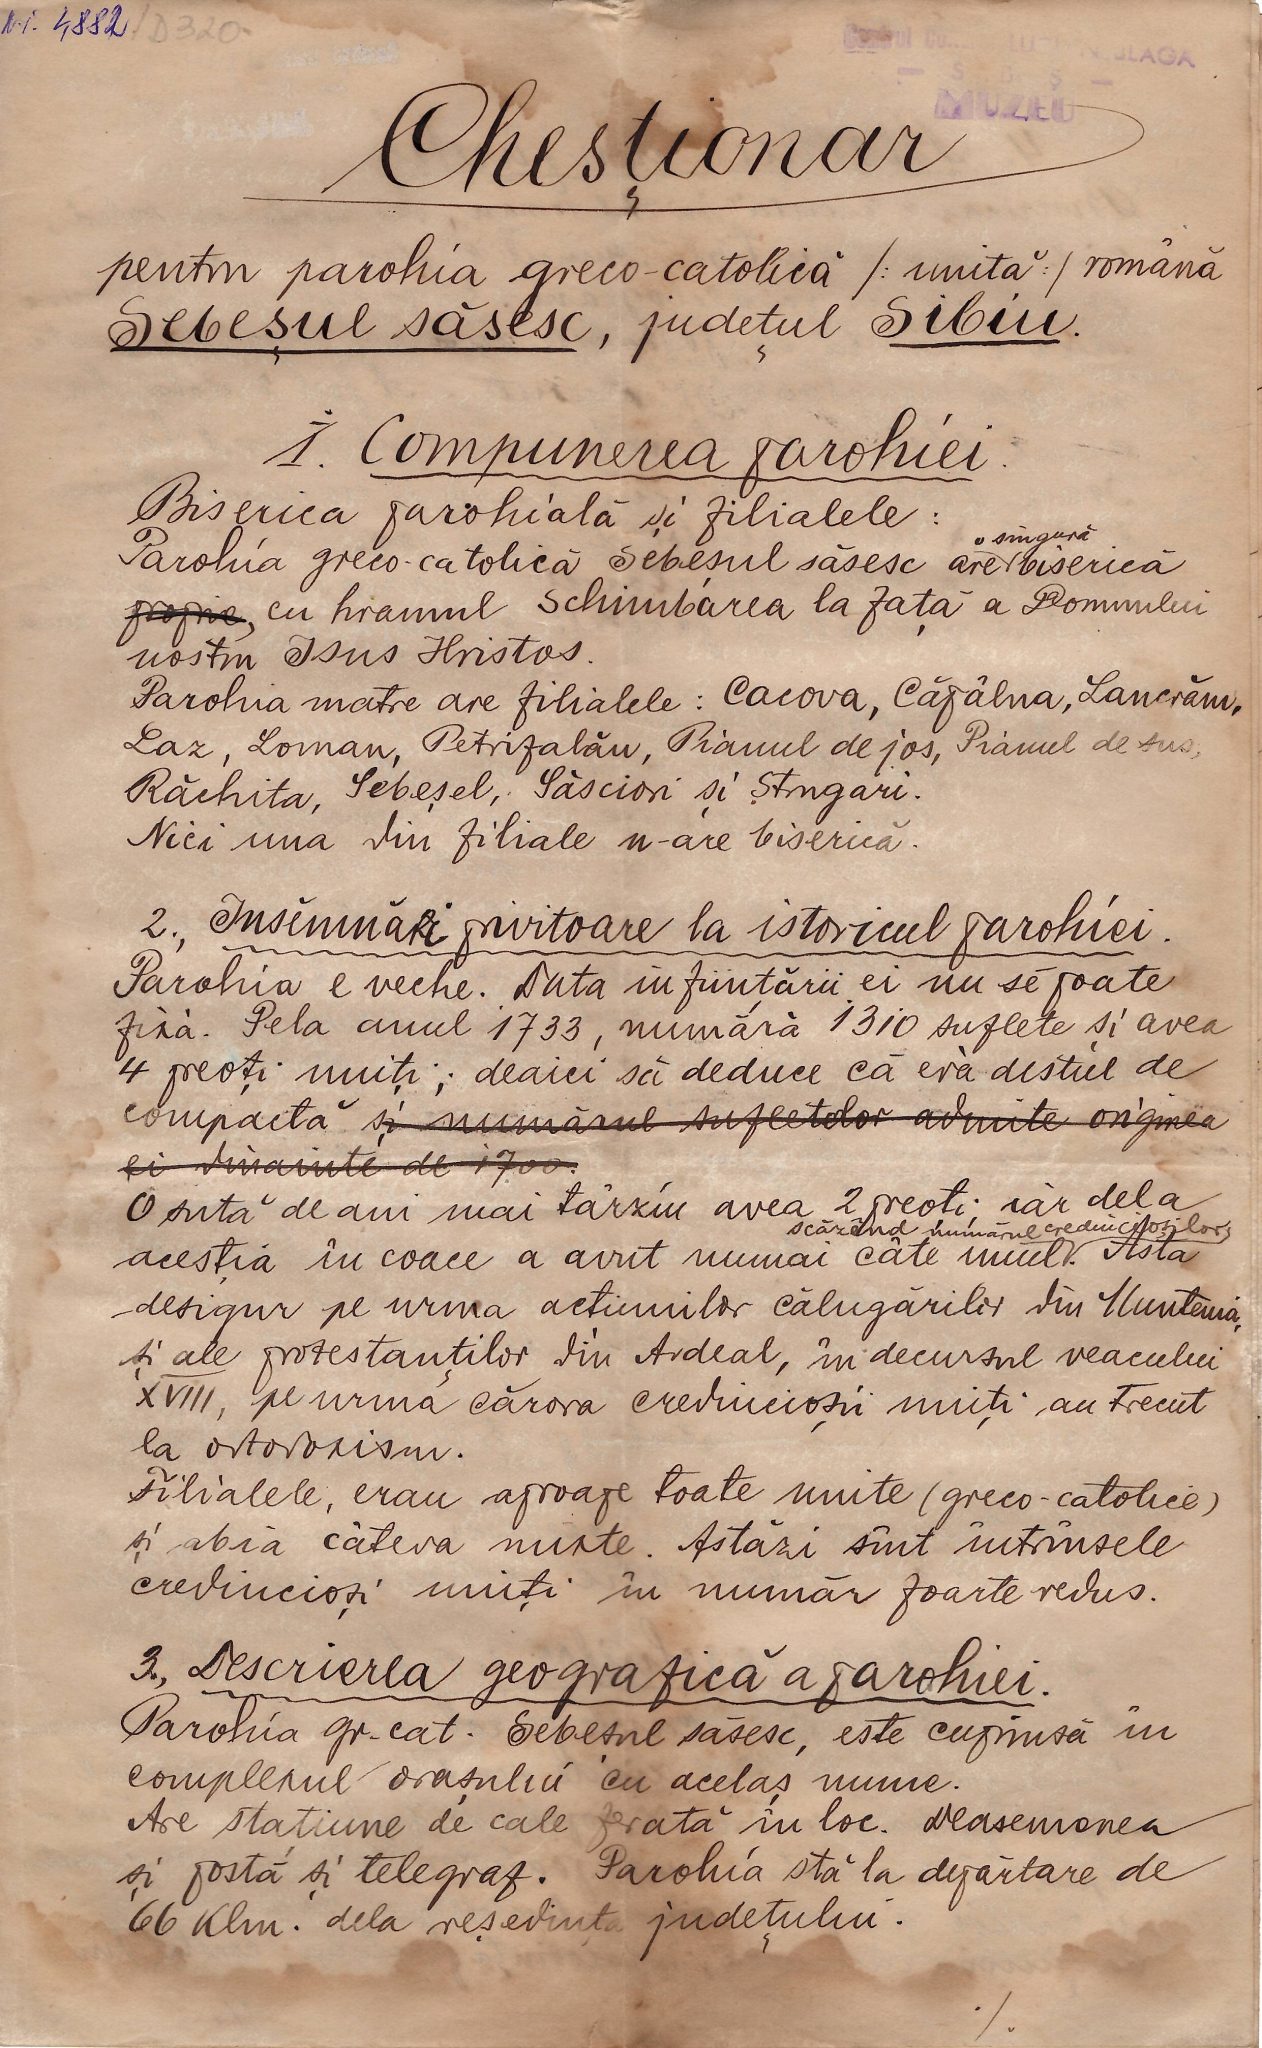 N.i. 4882 / D320
LUCIAN BLAGA
SEBEȘ
MUZEU
Chesționar
pentru parohia greco-catolică /: unită :/ română
Sebeșul săsesc, județul Sibiu.
1. Compunerea parohiei.
Biserica parohială și filialele :
o singură
Parohia greco-catolică Sebeșul săsesc are biserică
proprie, cu hramul Schimbarea la față a Domnului
nostru Isus Hristos.
Parohia matre are filialele : Cacova, Căpâlna, Lancrăm,
Laz, Loman, Petrifalău, Pianul de jos, Pianul de sus,
Răchita, Sebeșel, Săsciori și Strugari.
Nici una din filiale n-are biserică.
2., Insemnări privitoare la istoricul parohiei.
Parohia e veche. Data înființării ei nu se poate
fixà. Pela anul 1733, numără 1310 suflete și avea
4 preoți uniți; deaici să deduce că erà destul de
compactă și numărul sufletelor admite originea
ei dinainte de 1700.
O sută de ani mai târziu avea 2 preoți; iàr dela
scăzând numărul credincioșilor,
aceștia în coace a avut numai câte unul. Asta
desigur pe urma acțiunilor călugărilor din Muntenia,
și ale protestanților din Ardeal, în decursul veacului
XVIII, pe urma cărora credincioșii uniți au trecut
la ortodoxism.
Filialele, erau aproape toate unite (greco-catolice)
și abià câteva mixte. Astăzi sînt într'însele
credincioși uniți în număr foarte redus.
3., Descrierea geografică a parohiei.
Parohia gr-cat. Sebeșul săsesc, este cuprinsă în
complexul orașului cu acelaș nume.
Are stațiune de cale ferată în loc. Deasemenea
și poștă și telegraf. Parohia stă la depărtare de
66 Klm. dela reședința județului.
./.